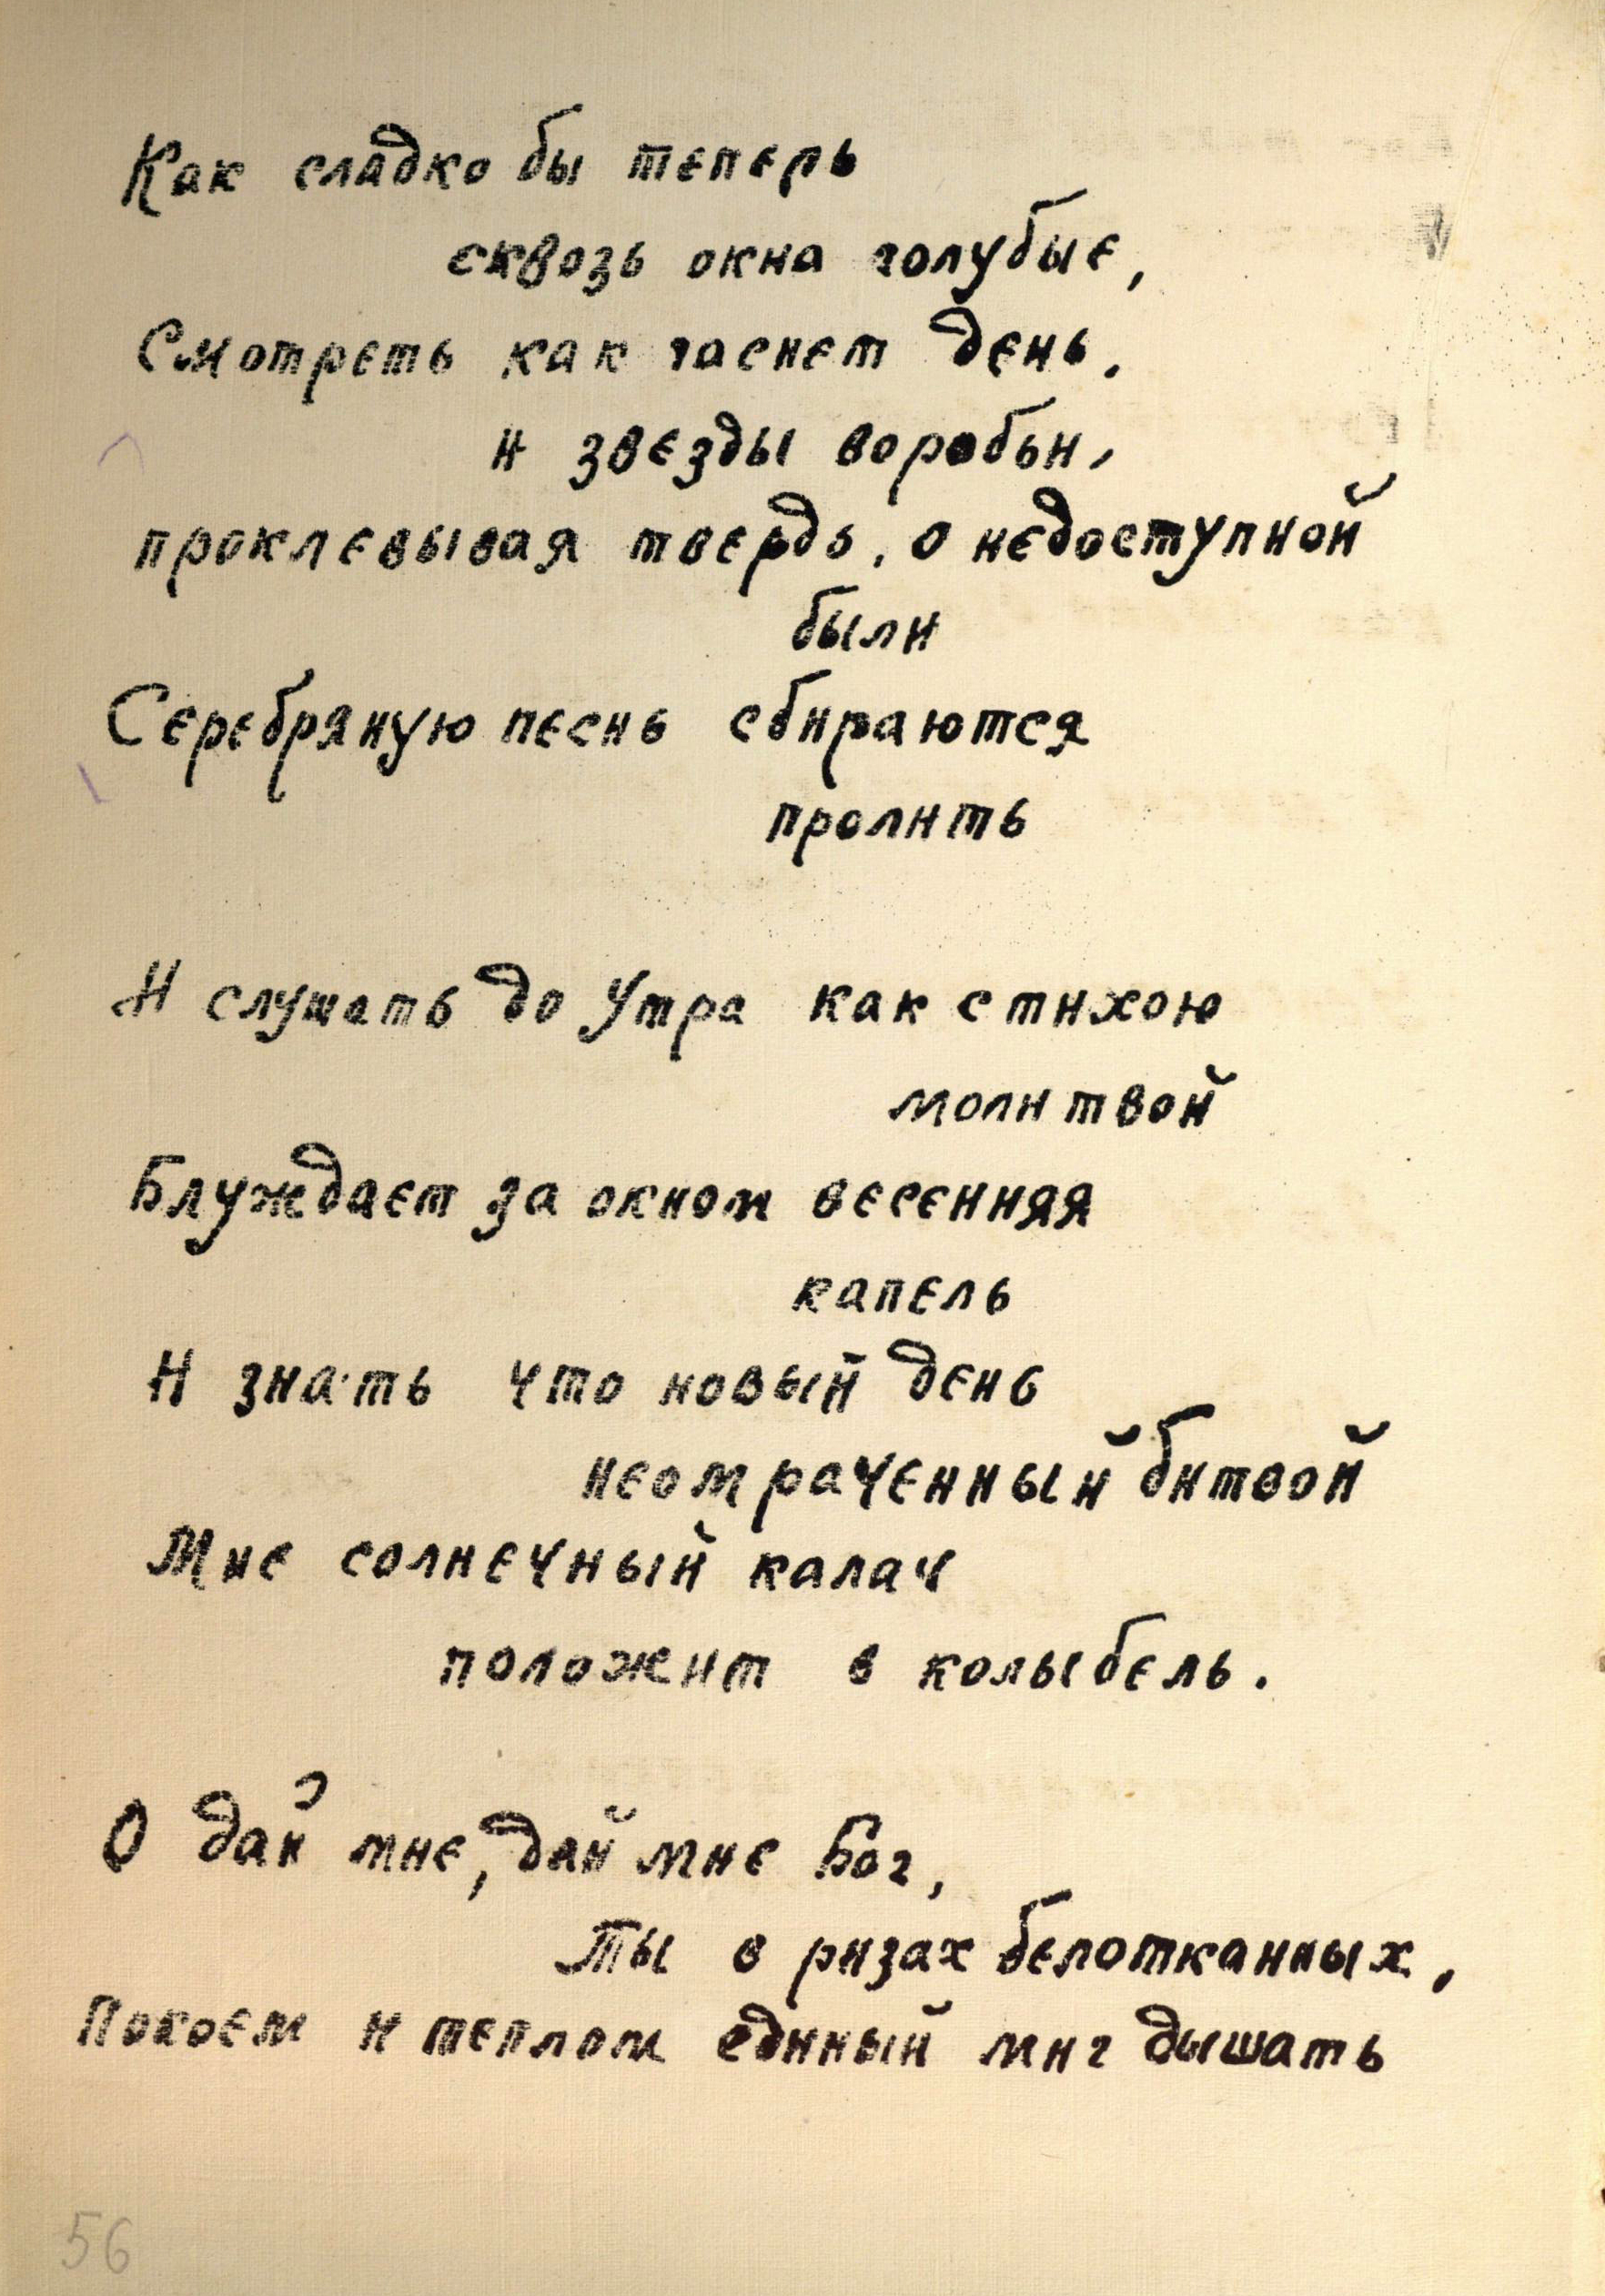 Как сладко бы теперь
сквозь окна голубые,
Смотреть как гаснет день.
и звезды воробьи,
проклевывая твердь, о недоступной
были
Серебряную песнь сбираются
пролить
И слушать до утра как с тихою
молитвой
Блуждает за окном весенняя
капель
И знать что новый день
неомраченный битвой
Мне солнечный калач
положит в колыбель.
О дай мне, дай мне Бог,
Ты в ризах белотканных,
Покоем и теплом единый миг дышать
56